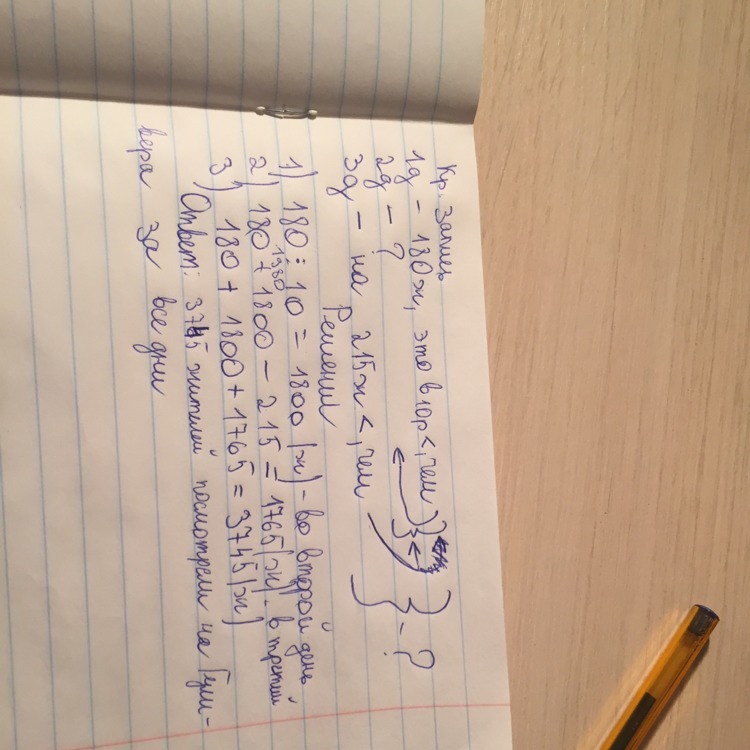 Кр. запись
1д – 180ж, это в 10р <, чем
2д – ?
3д – на 215ж <, чем
– ?
Решение
1) 180 : 10 = 1800 (ж) - во второй день
1980
2) 180 + 1800 – 215 = 1765 (ж) - в третий
3) 180 + 1800 + 1765 = 3745 (ж)
Ответ: 3745 жителей посмотрели на Гулли-
вера за все дни